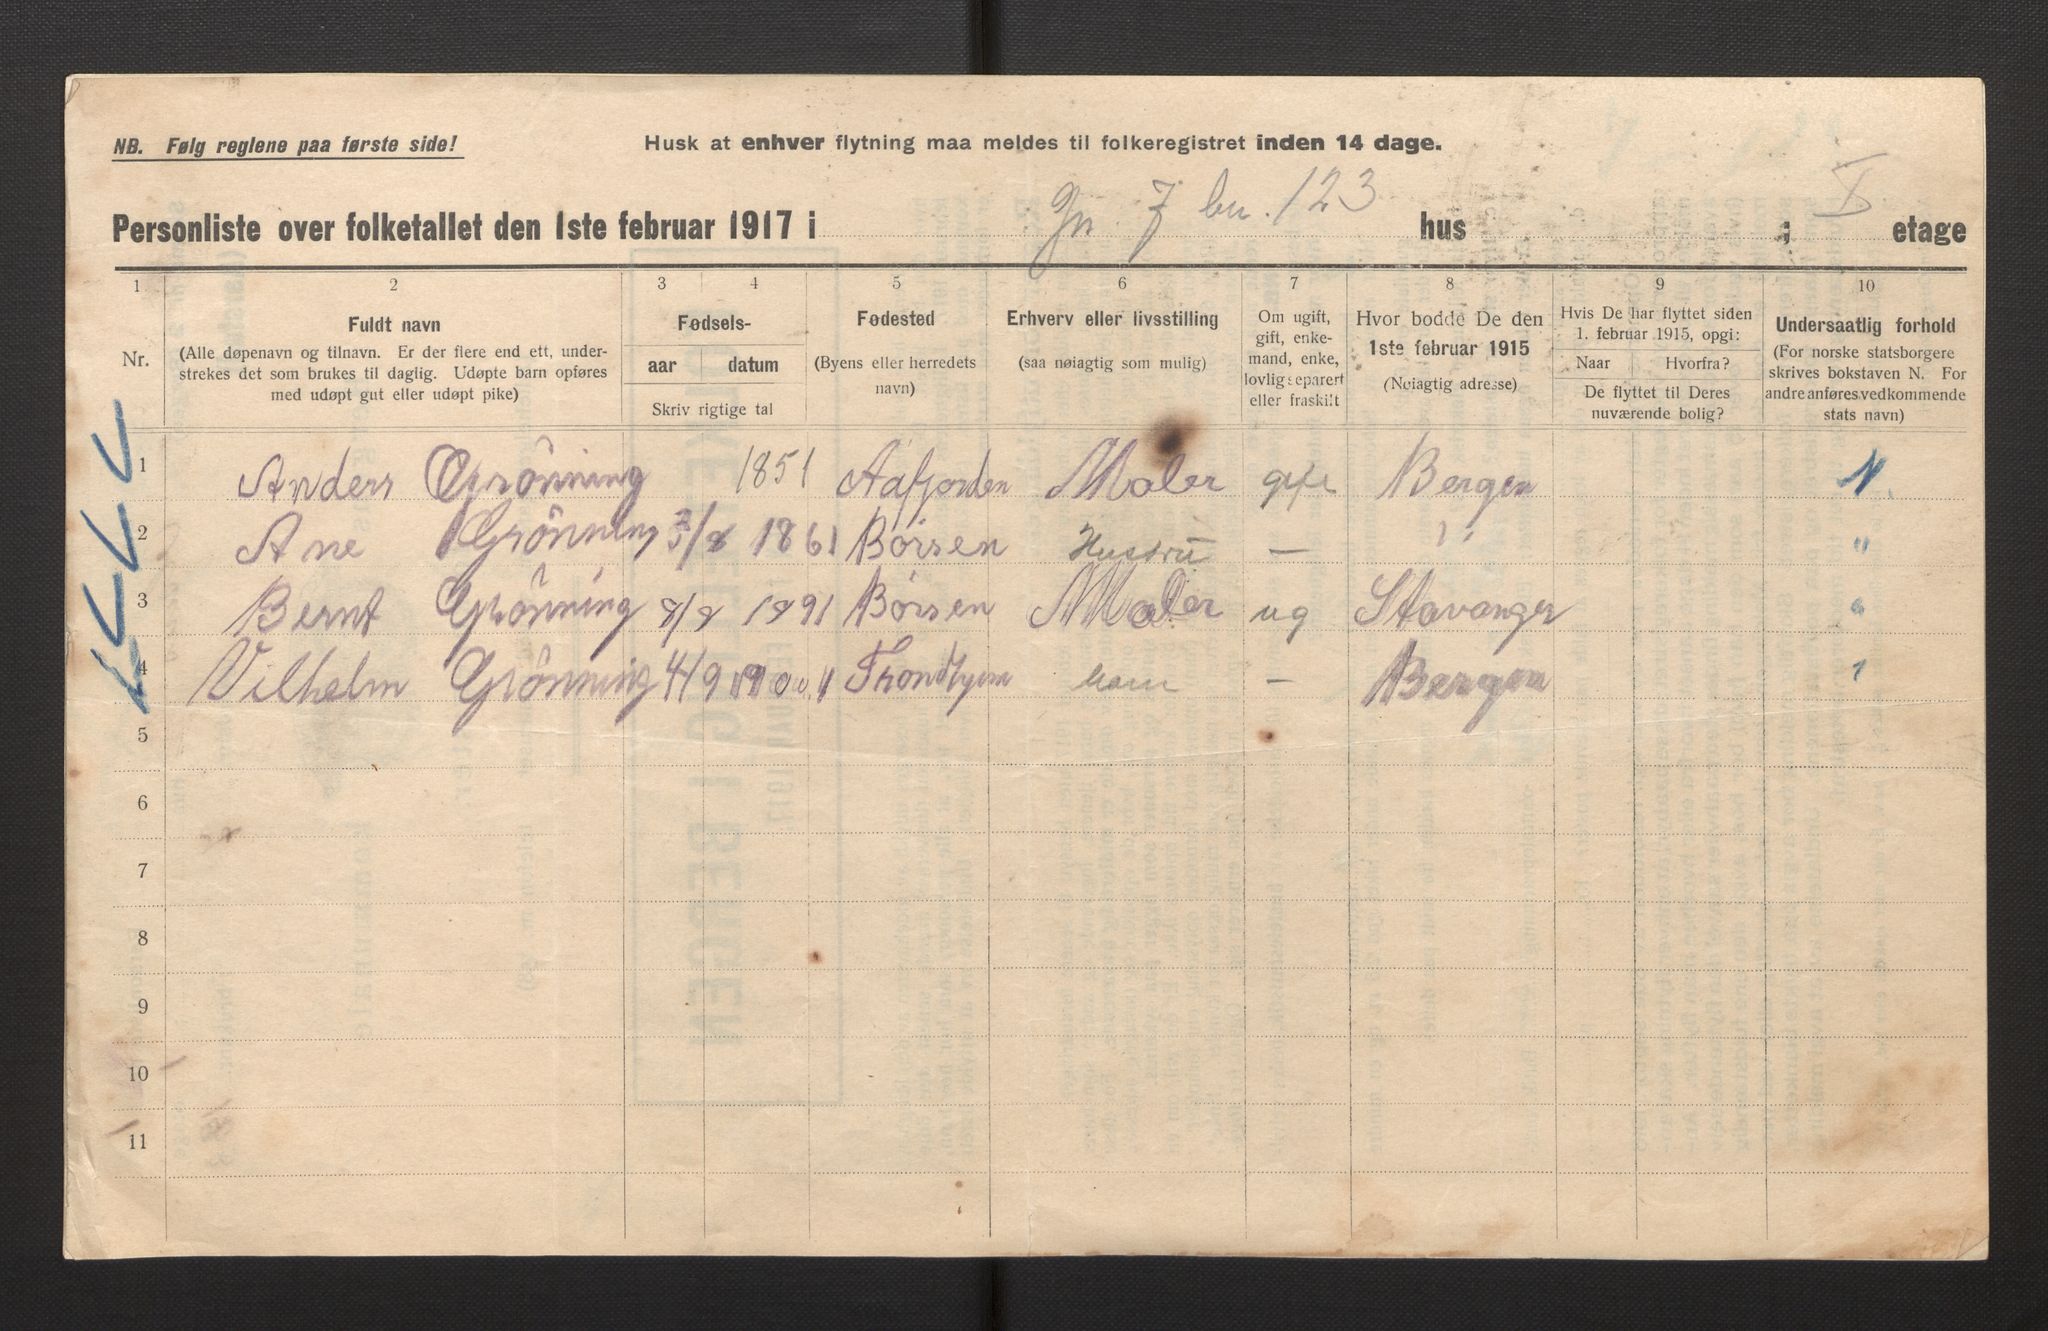 NB. Følg reglene paa første side! Husk at enhver flytning maa meldes til folkeregistret inden 14 dage.
Personliste over folketallet den 1ste februar 1917 i Gn 7 bn. 123 hus ; I etage
1 2 3 4 5 6 7 8 9 10
Nr.
Fuldt navn
(Alle døpenavn og tilnavn. Er der flere end ett, under-
strekes det som brukes til daglig. Udøpte barn opføres
med udøpt gut eller udøpt pike)
Fødsels-
aar datum
Skriv rigtige tal
Fødested
(Byens eller herredets
navn)
Erhverv eller livsstilling
(saa nøiagtig som mulig)
Om ugift,
gift, enke-
mand, enke,
lovlig separert
eller fraskilt
Hvor bodde De den
1ste februar 1915
(Nøiagtig adresse)
Hvis De har flyttet siden
1. februar 1915, opgi:
Naar Hvorfra?
De flyttet til Deres
nuværende bolig?
Undersaatlig forhold
(For norske statsborgere
skrives bokstaven N. For
andre anføres vedkommende
stats navn)
1 Anders Grönning 1851 Aafjorden Maler gift Bergen N.
2 Ane Grönning 3/8 1861 Børsen Hustru — " "
3 Bernt Grönning 8/8 1891 Børsen Maler ug Stavanger "
4 Vilhelm Grönning 4/9 1900 Trondhjem — Bergen "
5
6
7
8
9
10
11